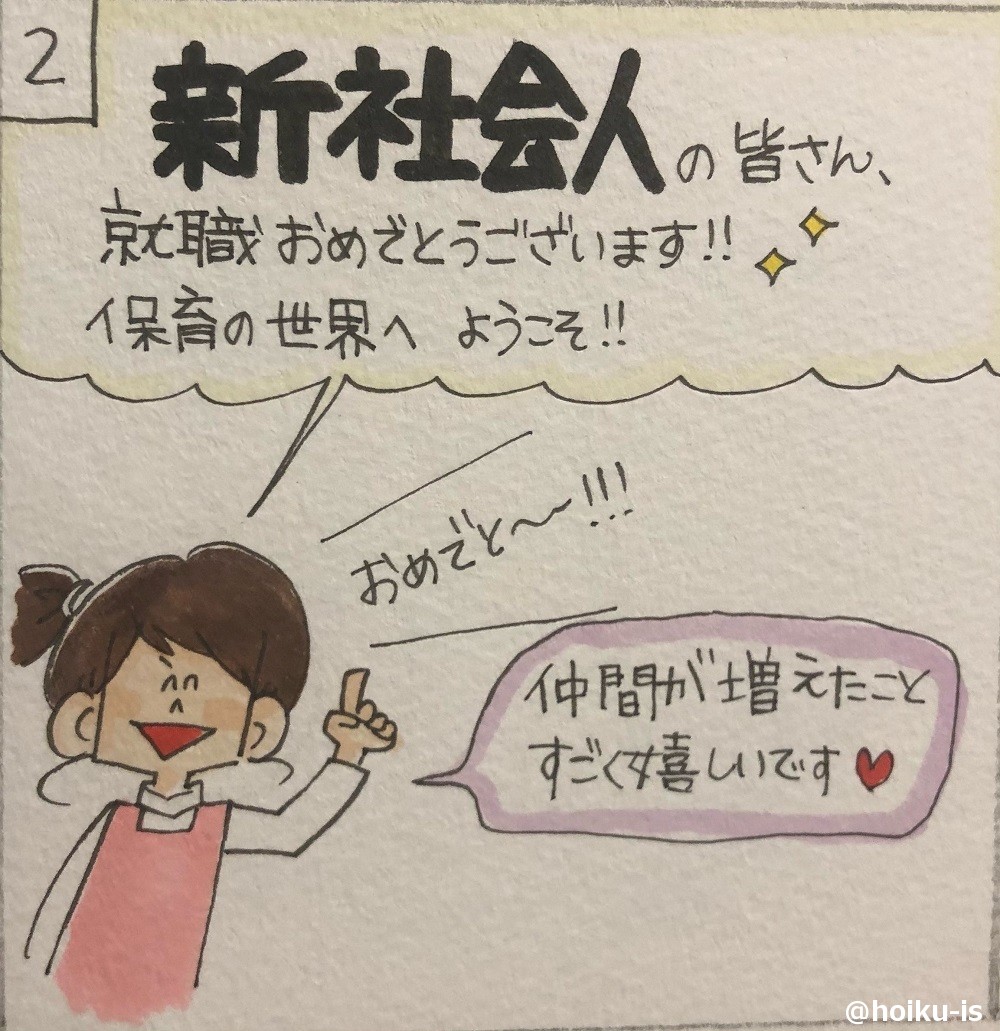 2
新社会人の皆さん、
就職おめでとうございます!!
保育の世界へ ようこそ!!
おめでと〜〜!!!
仲間が増えたこと
すごく嬉しいです♥
@hoiku-is